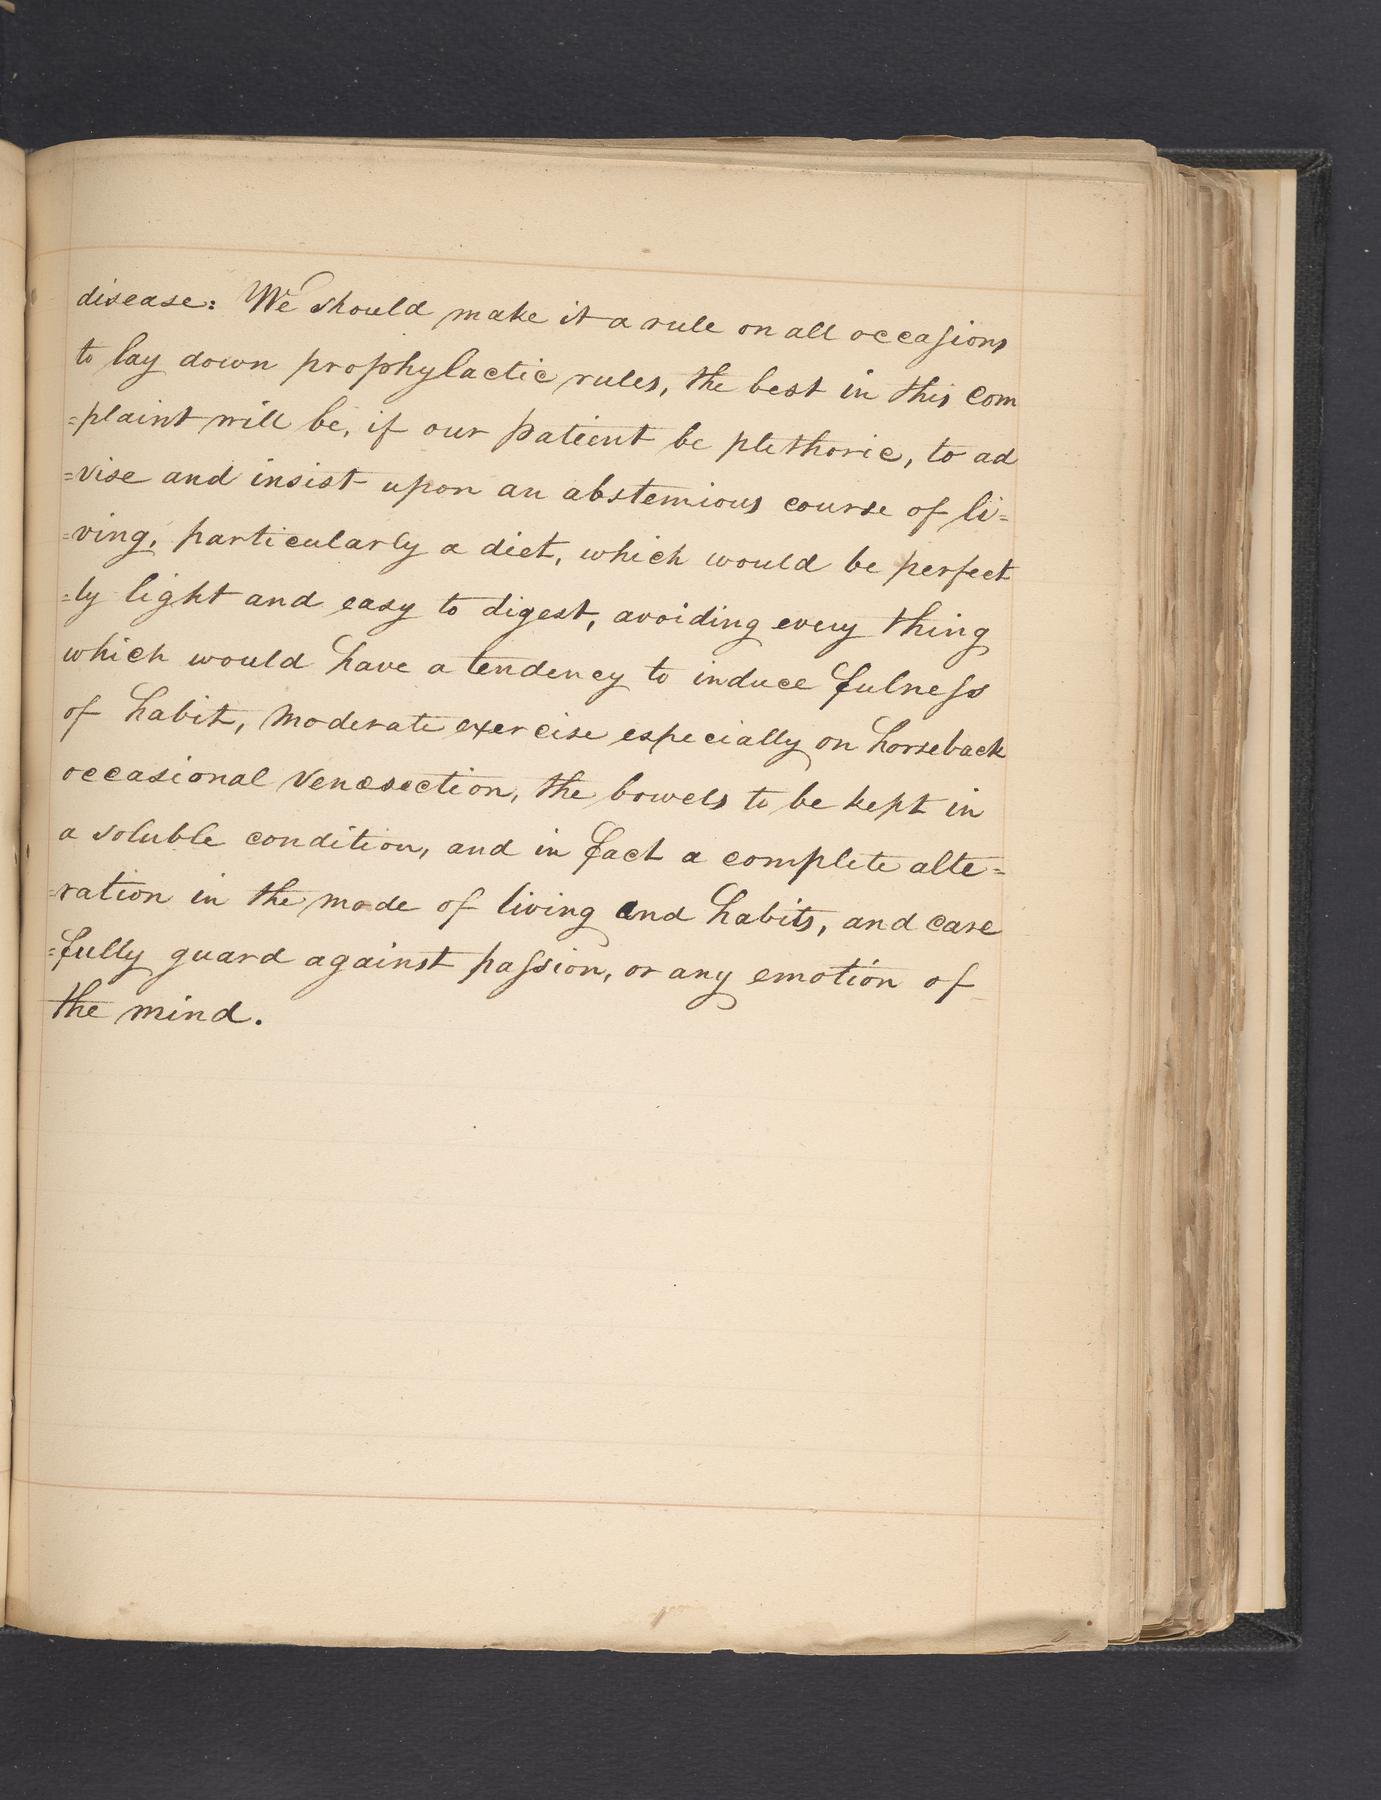 disease: We should make it a rule on all occasions
to lay down prophylactic rules, the best in this com
=plaint will be, if our patient be plethoric, to ad
=vise and insist upon an abstemious course of li=
=ving, particularly a diet, which would be perfect
=ly light and easy to digest, avoiding every thing
which would have a tendency to induce fulness
of habit, moderate exercise especially on horseback
occasional venesection, the bowels to be kept in
a soluble condition, and in fact a complete alte=
=ration in the mode of living and habits, and care
=fully guard against passion, or any emotion of
the mind.